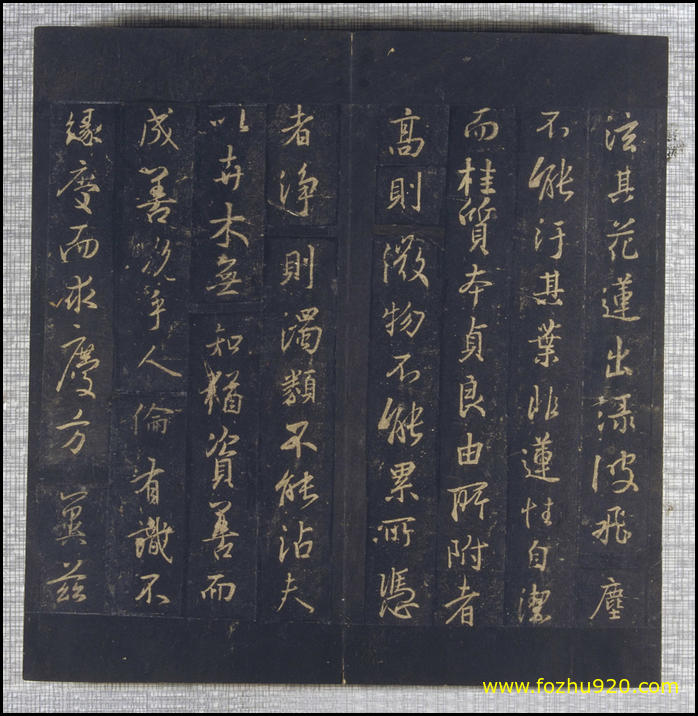 泫其花蓮出淥波飛塵
不能汙其葉非蓮性自潔
而桂質本貞良由所附者
高則微物不能累所憑
者淨則濁類不能沾夫
以卉木無知猶資善而
成善況乎人倫有識不
緣慶而求慶方冀茲
www.fozhu920.com